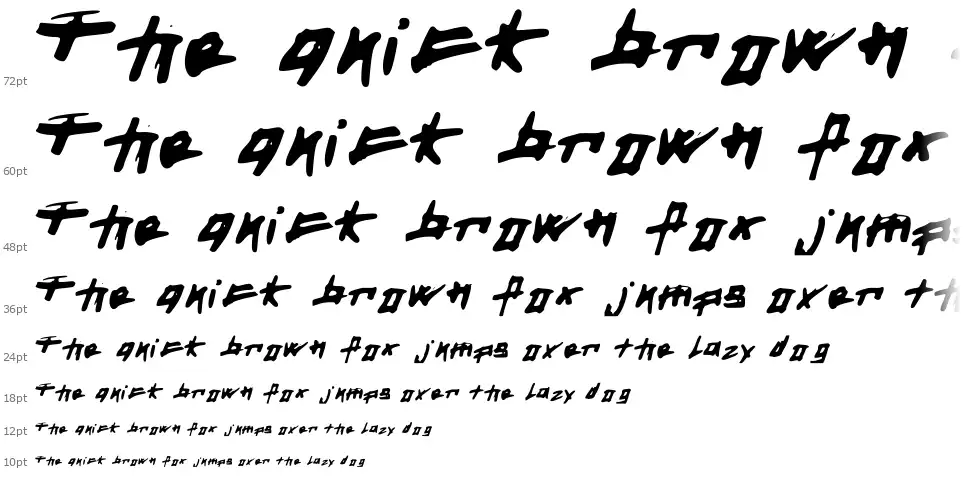 72pt The quick brown
60pt The quick brown fox
48pt The quick brown fox jumps
36pt The quick brown fox jumps over th
24pt The quick brown fox jumps over the lazy dog
18pt The quick brown fox jumps over the lazy dog
12pt The quick brown fox jumps over the lazy dog
10pt The quick brown fox jumps over the lazy dog